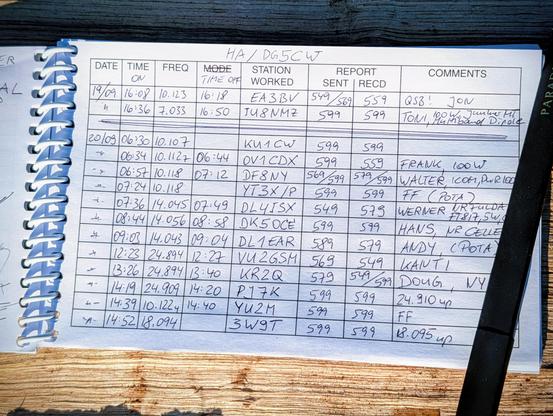 HA/DG5CW
DATE TIME ON FREQ MODE TIME OFF STATION WORKED REPORT SENT RECD COMMENTS
19/09 16:08 10.123 16:18 EA3IBV 549/569 559 QSB! JON
" 16:36 7.033 16:50 IU8NMZ 599 599 TONI, 100W,
20/09 06:30 10.107 KU1CW 599 599
" 06:34 10.112 06:44 OV1CDX 599 559 FRANK, 100W
" 06:57 10.118 07:12 DF8NY 569/599 579/599 WALTER, ICOM
" 07:24 10.118 YT3X/P 599 599 FF (POTA)
" 07:36 14.045 07:49 DL4ISX 549 579 WERNER NR FULDA
" 08:44 14.056 08:58 DK5OCE 599 599 HANS, NR CELLE
" 09:03 14.043 09:04 DL1EAR 589 579 ANDY (POTA
" 12:23 24.894 12:27 VU2GSM 569 549 KANTI
" 13:26 24.894 13:40 KR2Q 579 549/599 DOUG, NY
" 14:19 24.909 14:20 599 599 24.910 up
" 14:39 10.122 14:40 YU2M 599 599 FF
" 14:52 18.094 3W9T 599 599 18.095 up